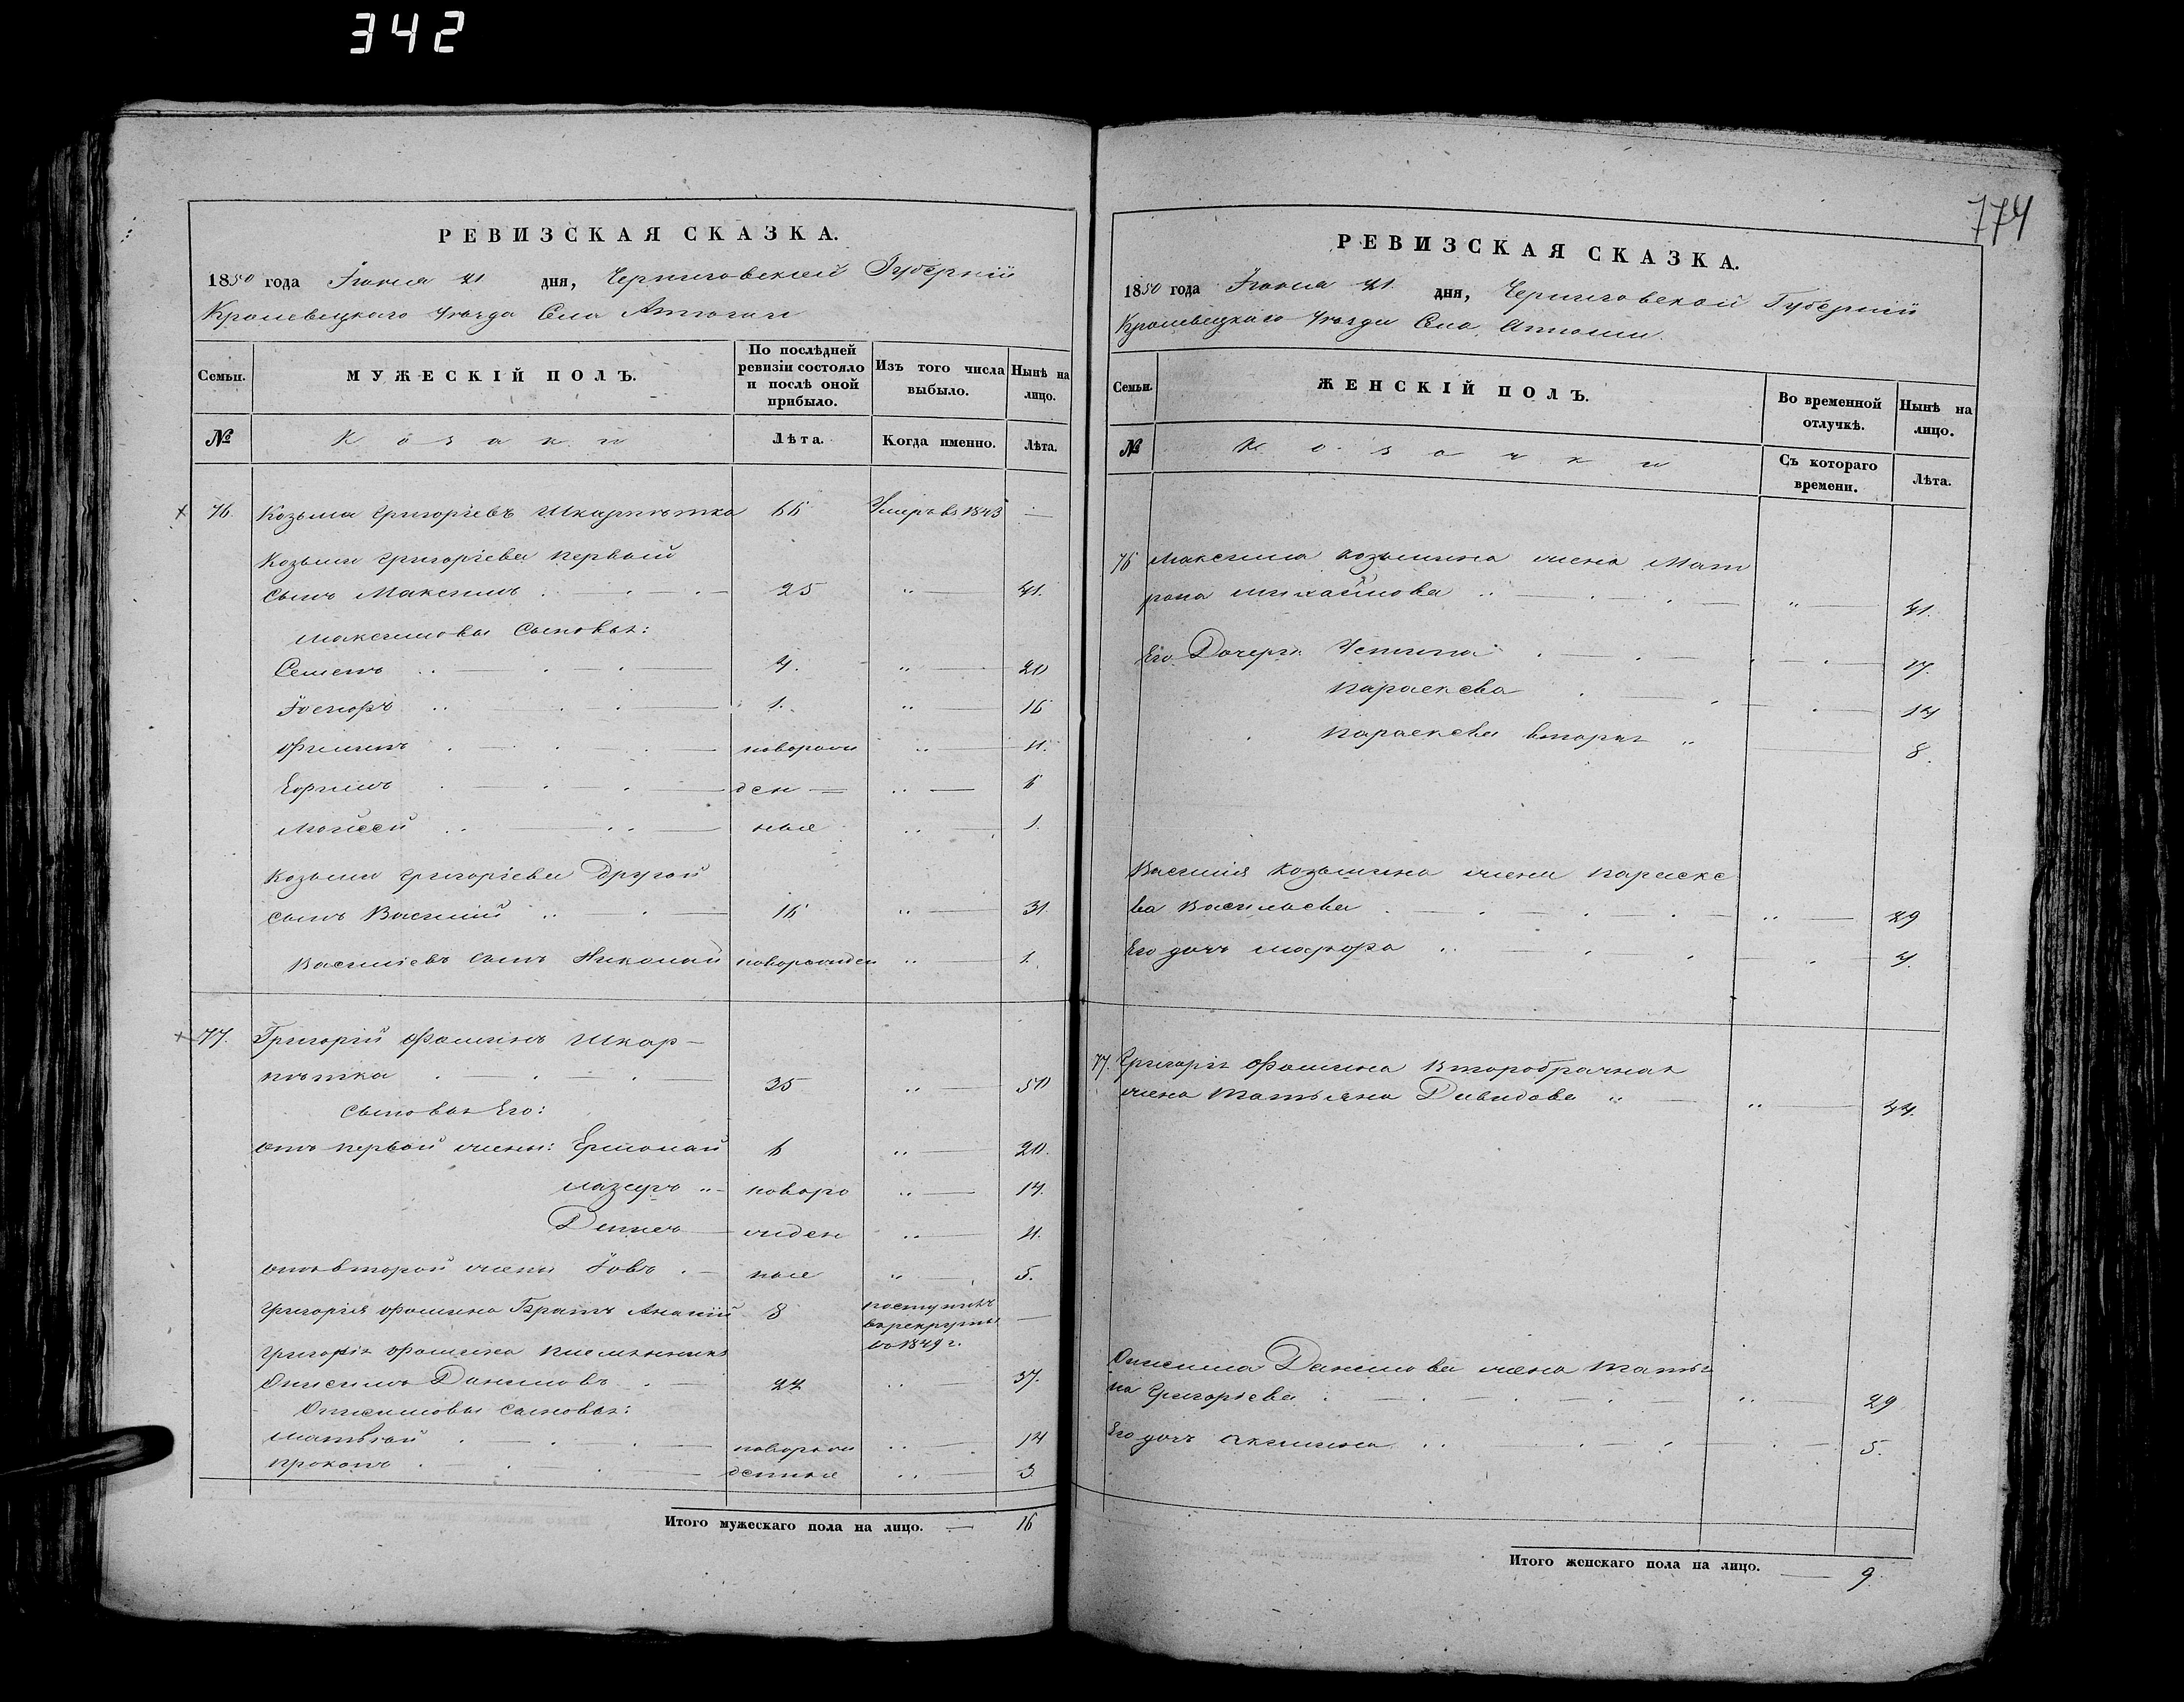 342
РЕВИЗСКАЯ СКАЗКА.
1850 года Іюня 21 дня, Черниговской Губерніи
Кролевецкаго Уѣзда Села
Семьи.
МУЖЕСКІЙ ПОЛЪ.
По послѣдней ревизіи состояло и послѣ оной прибыло.
Изъ того числа выбыло.
Нынѣ на лицо.
№
Козаки
Лѣта.
Когда именно.
Лѣта.
76. Козьма Григоріевъ Шкарпѣтка 66 Умеръ въ 1843 —
Козьмы Григоріева первый
сынъ Максимъ 25 " 41.
Максимовы сыновья:
Семенъ 4. " 20
1. " 16
Филипъ новорож " 11.
Ефимъ ден " 6
Моисей ные " 1.
Козьмы Григоріева другой
сынъ Василій 16 " 31
Василіевъ сынъ Николай новорожден " 1.
77. Григорій Фоминъ Шкар-
пѣтка 35 " 50
Сыновья Его:
отъ первой жены: Ермолай 6 " 20.
Лазарь новоро " 14.
Денисъ жден " 11.
отъ второй жены Іовъ ные " 5.
Григорія Фомина Братъ Ананій 8 поступилъ
въ рекруты
во 1849 г. —
Григорія Фомина племянникъ
Онисимъ Даниловъ 22 " 37.
Онисимовы сыновья:
Матвѣй новорож " 14
Прокопъ денные " 3
Итого мужескаго пола на лицо. — 16
774
РЕВИЗСКАЯ СКАЗКА.
1850 года Іюня 21. дня, Черниговской Губерніи
Кролевецкаго Уѣзда Села
Семьи.
ЖЕНСКІЙ ПОЛЪ.
Во временной отлучкѣ.
Нынѣ на лицо.
№
Козачки
Съ котораго времени.
Лѣта.
76 Максима Козьмина жена Мат
рона Михайлова " 41.
Его Дочери Устина 17.
Параскева 14
Параскева вторая " 8.
Василія Козьмина жена Параске
ва Васильева " 29
Его дочь Марфа 4.
77. Григорія Фомина второбрачная
жена Татьяна Давидова " 44.
Онисима Данилова жена Татья
на Григорьева " 29
Его дочь Акилина 5.
Итого женскаго пола на лицо. — 9.